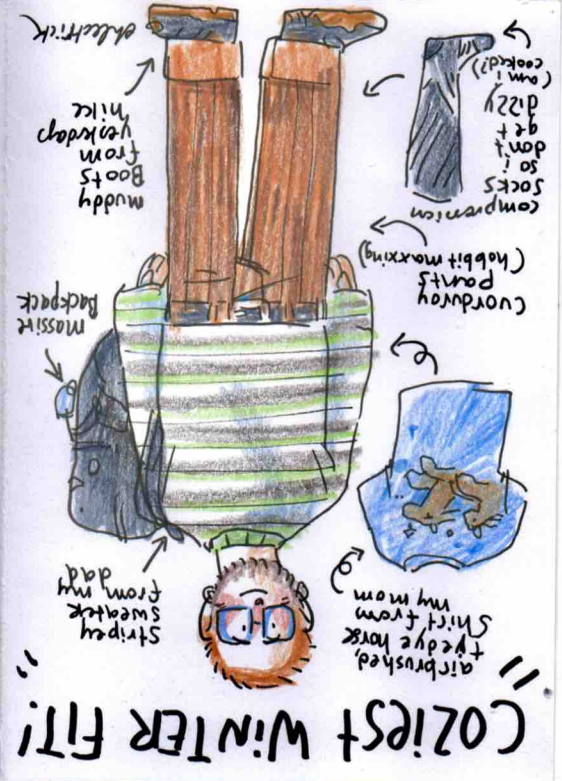 "COZiEST WiNTER FiT!"
airbrushed,
tyedye horse
shirt from
my mom
Stripey
sweater
from my
dad
massive
Backpack
corduroy
pants
(hobbit maxxing)
compression
socks
so i
don't
get
dizzy
(am i
cooked?)
muddy
Boots
from
yesterday
hike
ehlectrick